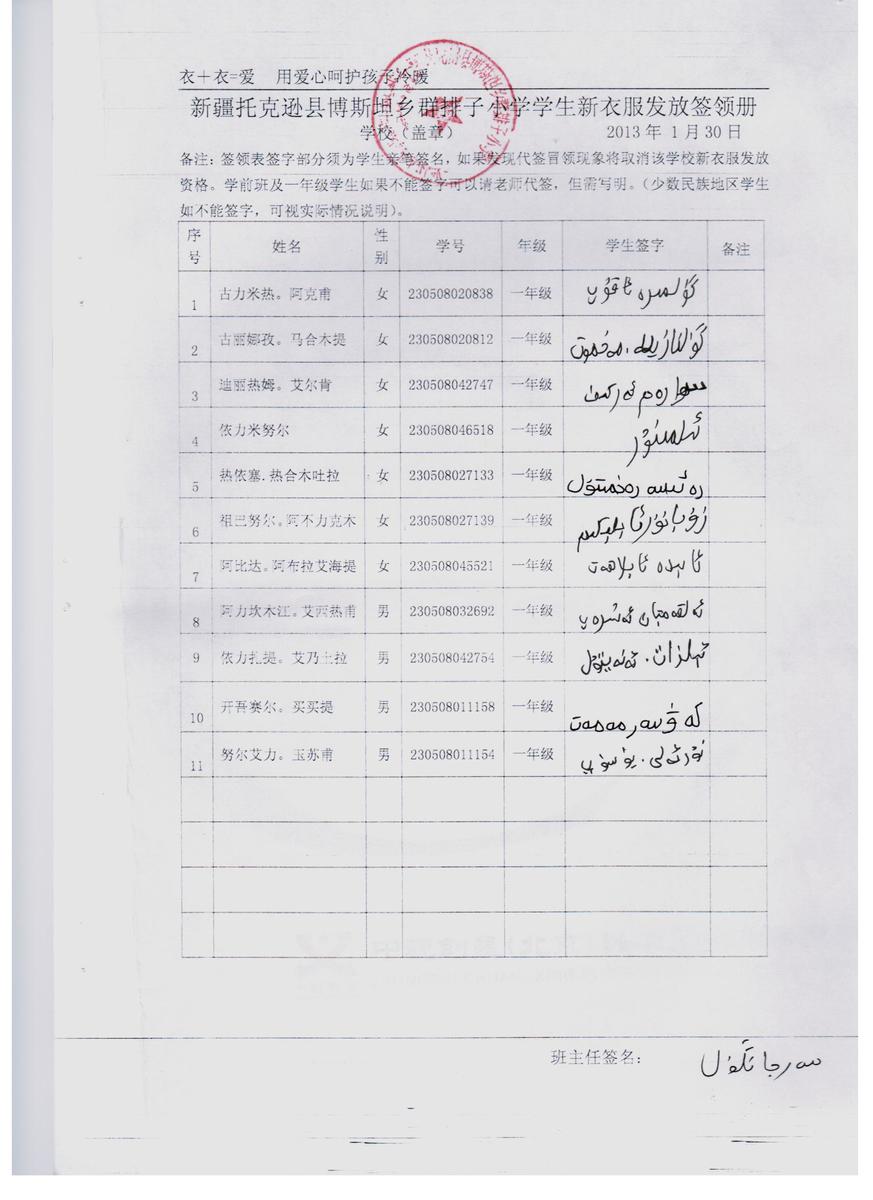 衣＋衣=爱　用爱心呵护孩子冷暖
新疆托克逊县博斯坦乡群排子小学学生新衣服发放签领册
学校（盖章） 2013 年 1 月 30 日
备注：签领表签字部分须为学生亲笔签名，如果发现代签冒领现象将取消该学校新衣服发放
资格。学前班及一年级学生如果不能签字可以请老师代签，但需写明。（少数民族地区学生
如不能签字，可视实际情况说明）。
序号 姓名 性别 学号 年级 学生签字 备注
1 古力米热。阿克甫 女 230508020838 一年级 گۈلمىرە ئاقۇپ
2 古丽娜孜。马合木提 女 230508020812 一年级
3 迪丽热姆。艾尔肯 女 230508042747 一年级
4 依力米努尔 女 230508046518 一年级 ئىلمىنۇر
5 热依塞.热合木吐拉 女 230508027133 一年级 رەئىسە رەخمىتۇل
6 祖巴努尔。阿不力克木 女 230508027139 一年级
7 阿比达。阿布拉艾海提 女 230508045521 一年级
8 阿力坎木江。艾西热甫 男 230508032692 一年级
9 依力扎提。艾乃土拉 男 230508042754 一年级
10 开吾赛尔。买买提 男 230508011158 一年级 كەۋسەر مەمەت
11 努尔艾力。玉苏甫 男 230508011154 一年级 نۇرئەلى. يۈسۈپ
班主任签名：